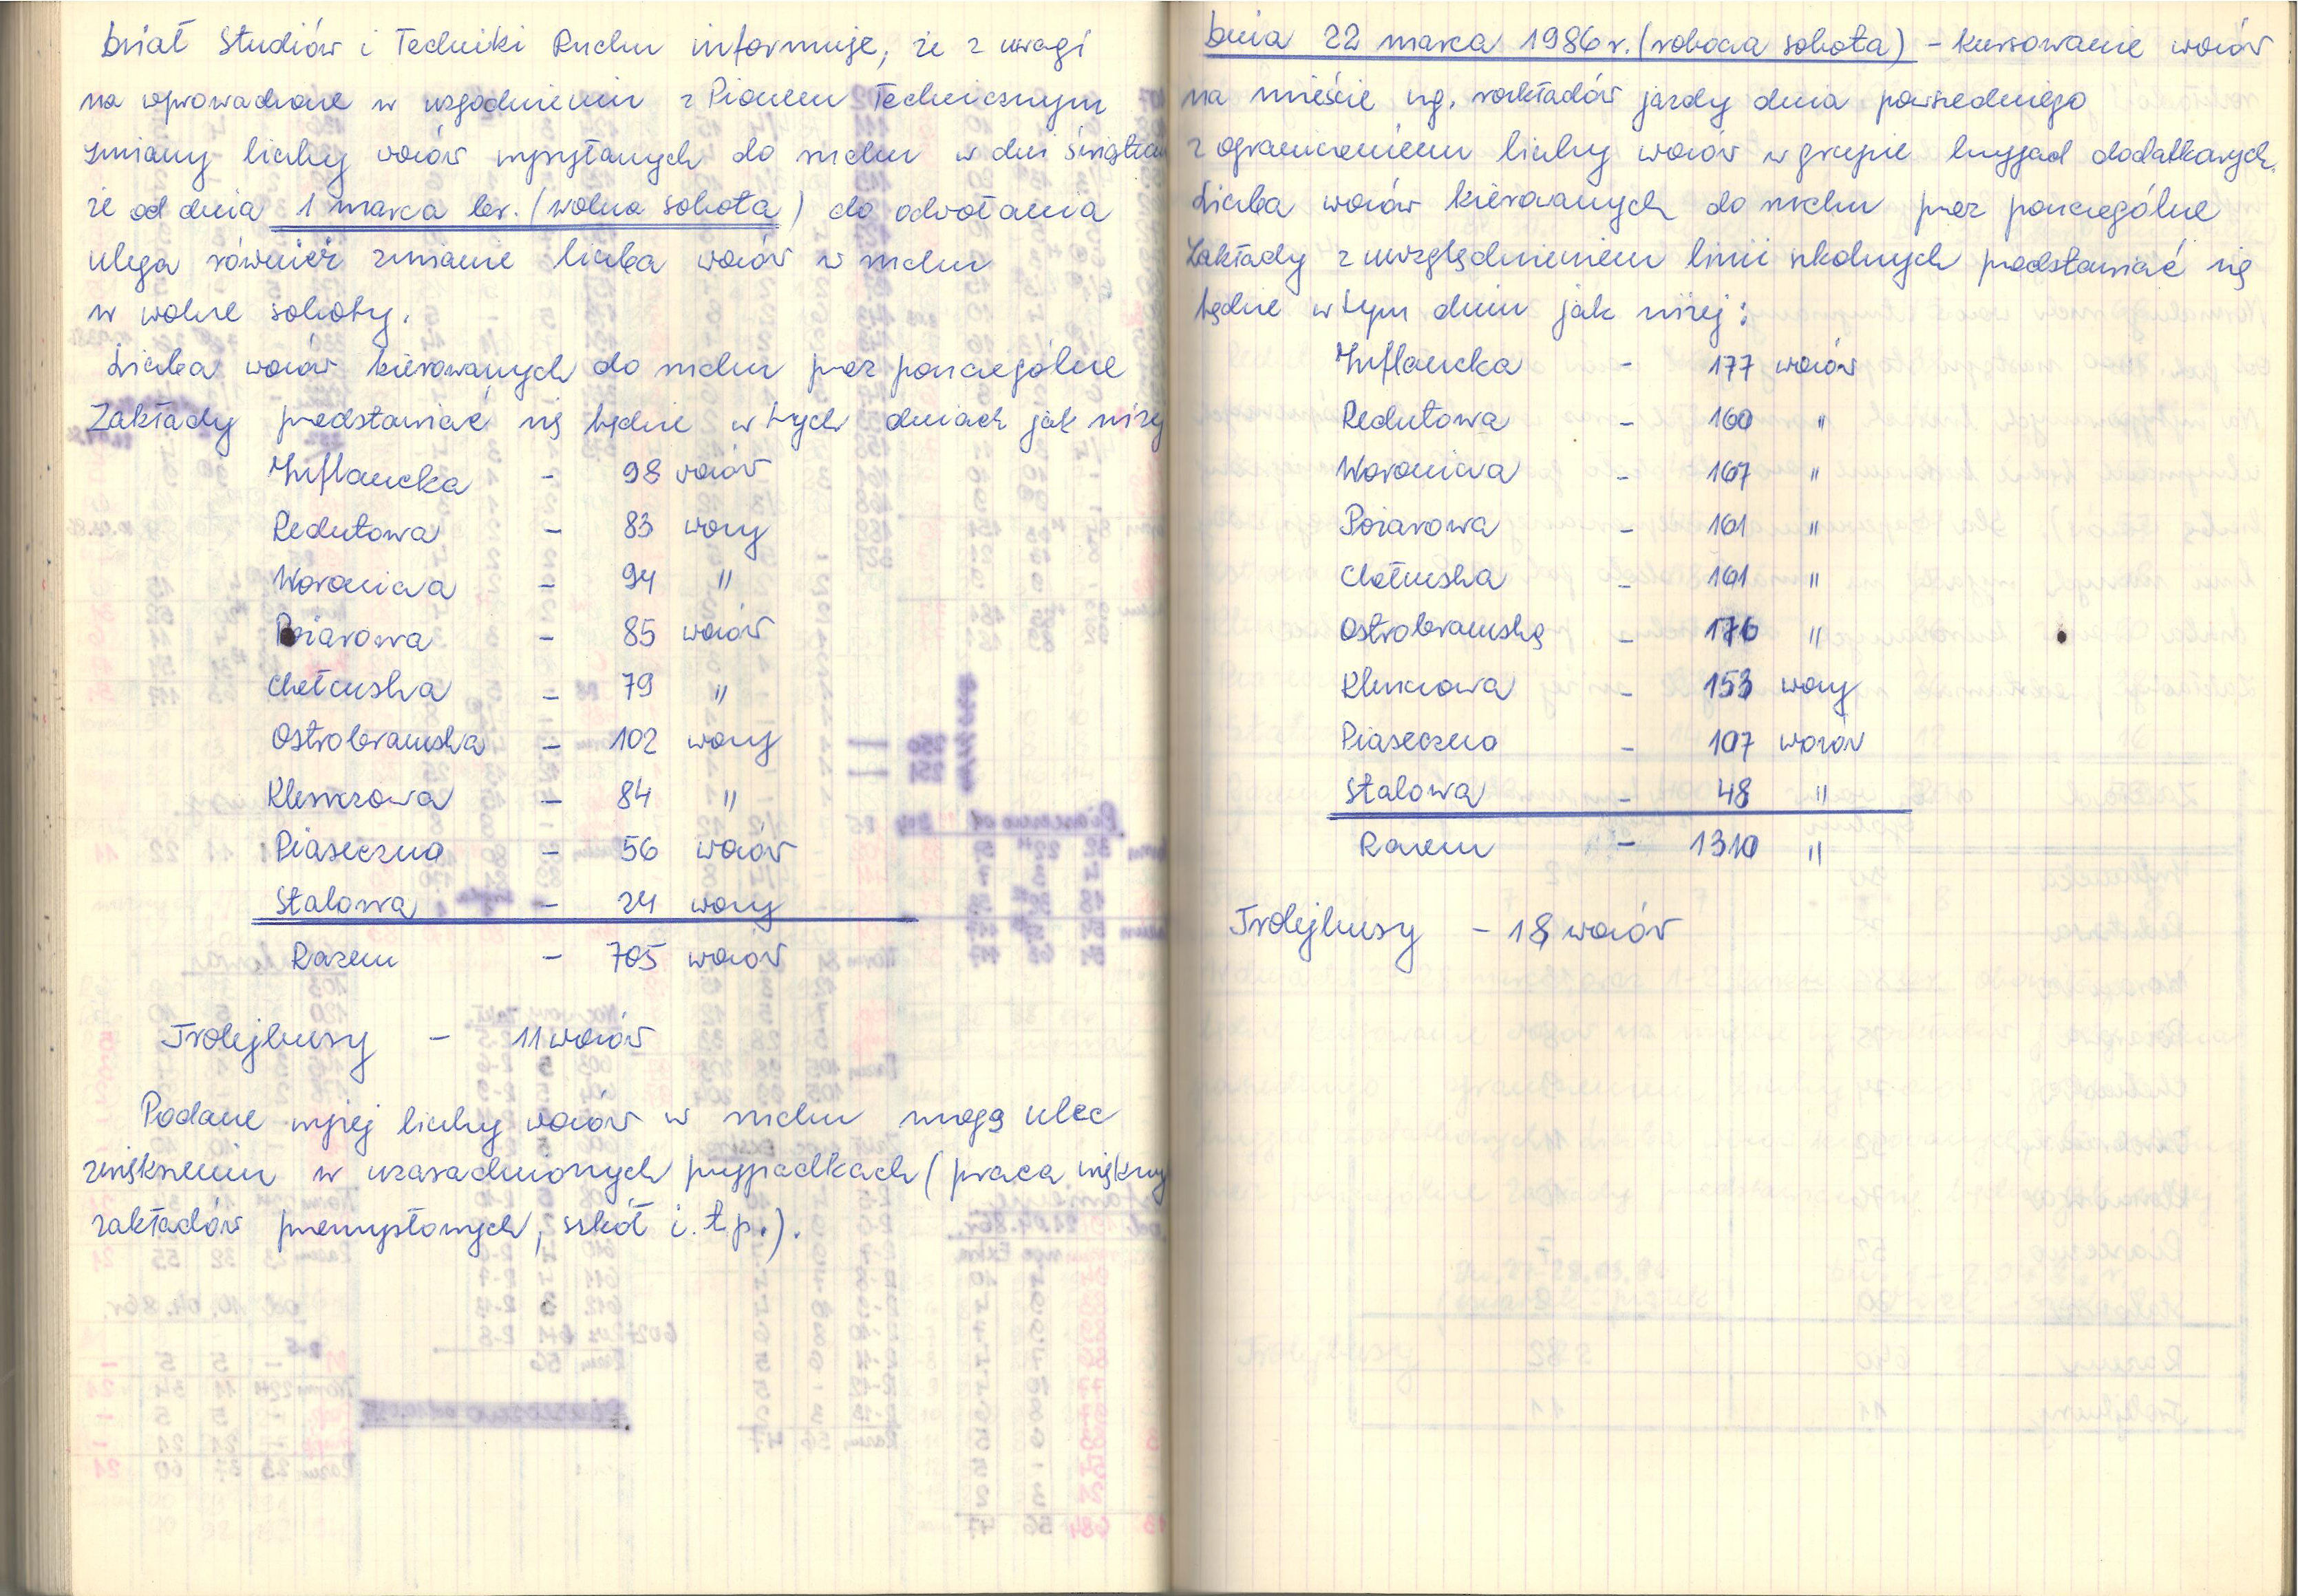 Dział Studiów i Techniki Ruchu informuje, że z uwagi
na wprowadzone w uzgodnieniu z Pionem Technicznym
zmiany liczby wozów wysyłanych do ruchu w dni świąteczne
że od dnia 1 marca br. (wolna sobota) do odwołania
ulega również zmianie liczba wozów w ruchu
w wolne soboty.
Liczba wozów kierowanych do ruchu przez poszczególne
Zakłady przedstawiać się będzie w tych dniach jak niżej
Inflancka - 98 wozów
Redutowa - 83 wozy
Woronicza - 94 "
Pożarowa - 85 wozów
Chełmska - 79 "
Ostrobramska - 102 wozy
Kleszczowa - 84 "
Piaseczno - 56 wozów
Stalowa - 24 wozy
Razem - 705 wozów
Trolejbusy - 11 wozów
Podane wyżej liczby wozów w ruchu mogą ulec
zwiększeniu w uzasadnionych przypadkach (praca większych
zakładów przemysłowych, szkół i.t.p.).
Dnia 22 marca 1986 r. (robocza sobota) - kursowanie wozów
na mieście wg. rozkładów jazdy dnia powszedniego
z ograniczeniem liczby wozów w grupie brygad dodatkowych.
Liczba wozów kierowanych do ruchu przez poszczególne
Zakłady z uwzględnieniem linii szkolnych przedstawiać się
będzie w tym dniu jak niżej:
Inflancka - 177 wozów
Redutowa - 160 "
Woronicza - 167 "
Pożarowa - 161 "
Chełmska - 161 "
Ostrobramska - 176 "
Kleszczowa - 153 wozy
Piaseczno - 107 wozów
Stalowa - 48 "
Razem - 1310 "
Trolejbusy - 18 wozów